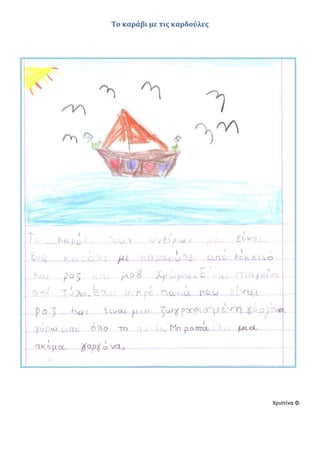 Το καράβι με τις καρδούλες
Το καράβι των ονείρων μου είναι
ένα καράβι με καρδούλες από κόκκινο
και ροζ και μοβ χρώμα. Είναι φτιαγμένο
από ξύλο. Έχει μικρά πανιά που είναι
ροζ και είναι μια ζωγραφισμένη γοργόνα
γύρω από όλο το Μπροστά έχει μια
ακόμα γοργόνα.
Χριστίνα Φ.